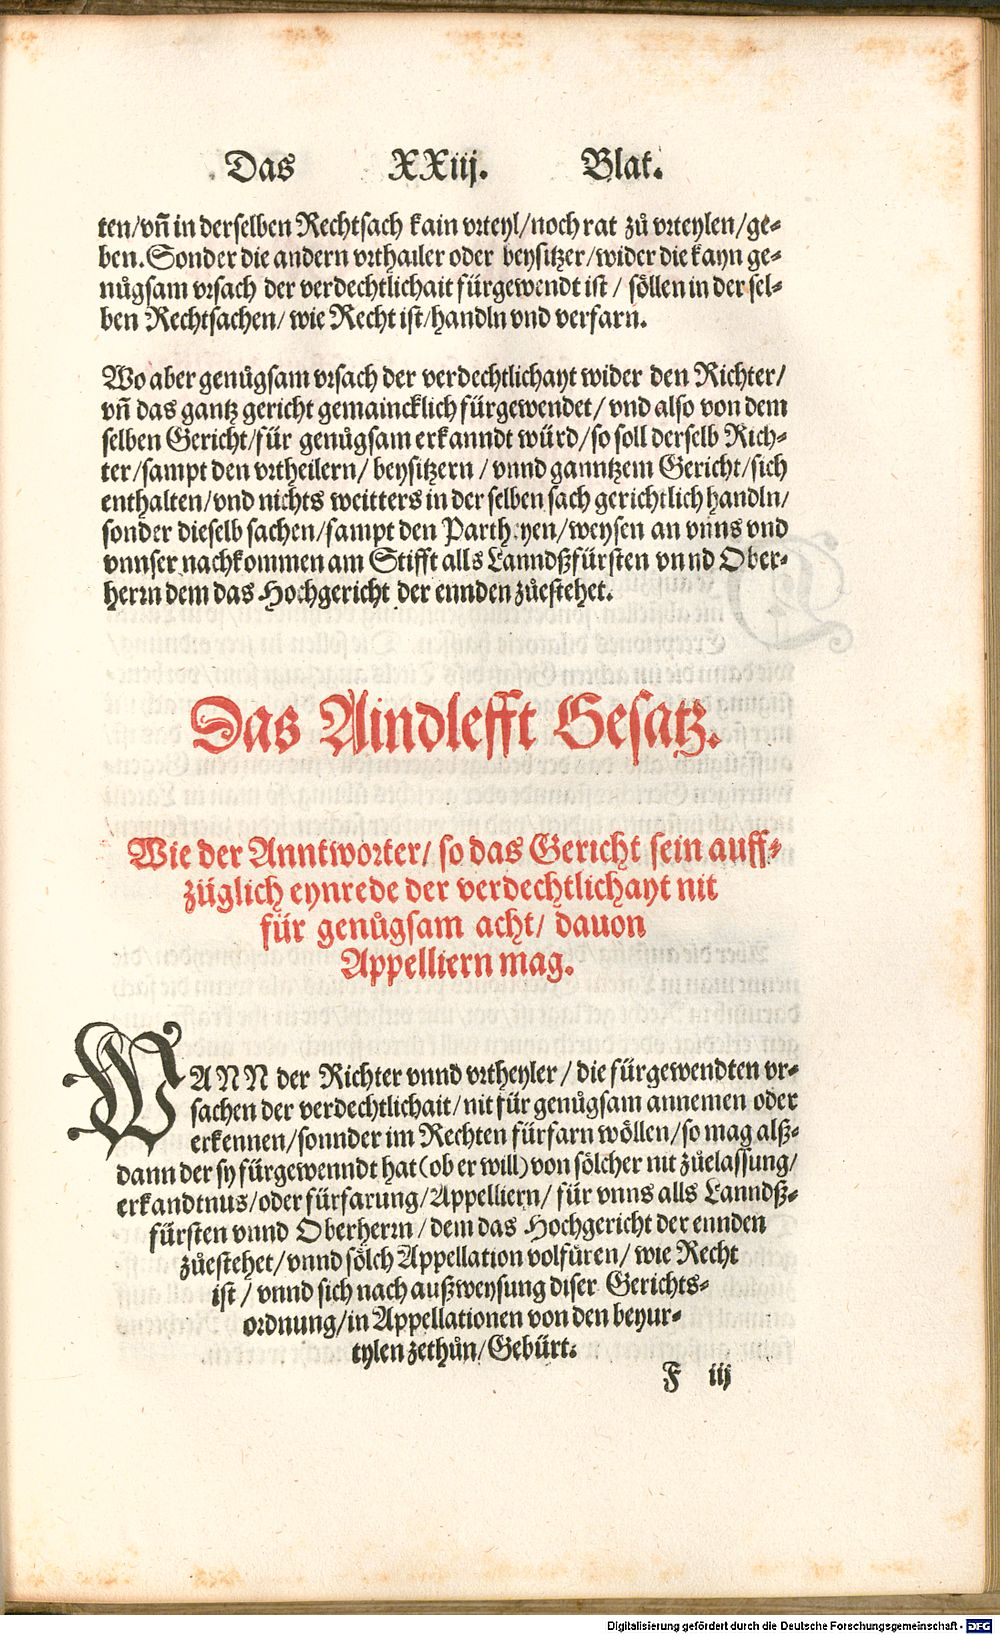 Das XXiij. Blat.
ten/vñ in derselben Rechtsach kain vrteyl/noch rat zů vrteylen/ge⸗
ben. Sonder die andern vrthailer oder beysitzer/wider die kayn ge⸗
nůgsam vrsach der verdechtlichait fürgewendt ist/ söllen in der sel⸗
ben Rechtsachen/ wie Recht ist/handln vnd verfarn.
Wo aber genůgsam vrsach der verdechtlichayt wider den Richter/
vñ das gantz gericht gemaincklich fürgewendet/ vnd also von dem
selben Gericht/für genůgsam erkanndt würd/so soll derselb Rich⸗
ter/sampt den vrtheilern/ beysitzern/vnnd ganntzem Gericht/sich
enthalten/vnd nichts weitters in der selben sach gerichtlich handln/
sonder dieselb sachen/sampt den Parthyen/weysen an vnns vnd
vnnser nachkommen am Stifft alls Lanndßfürsten vnnd Ober⸗
herrn dem das Hochgericht der ennden zůestehet.
Das Aindlefft Gesatz.
Wie der Anntworter/ so das Gericht sein auff⸗
züglich eynrede der verdechtlichayt nit
für genůgsam acht/ dauon
Appelliern mag.
WANN der Richter vnnd vrtheyler/ die fürgewendten vr⸗
sachen der verdechtlichait/nit für genůgsam annemen oder
erkennen/sonnder im Rechten fürfarn wöllen/so mag alß⸗
dann der sy fürgewenndt hat (ob er will) von sölcher nit zůelassung/
erkandtnus/oder fürfarung/Appelliern/ für vnns alls Lanndß⸗
fürsten vnnd Oberherrn/dem das Hochgericht der ennden
zůestehet/vnnd sölch Appellation volfüren/ wie Recht
ist/ vnnd sich nach außweysung diser Gerichts⸗
ordnung/in Appellationen von den beyur⸗
tylen zethůn/Gebürt.
F iij
Digitalisierung gefördert durch die Deutsche Forschungsgemeinschaft - DFG